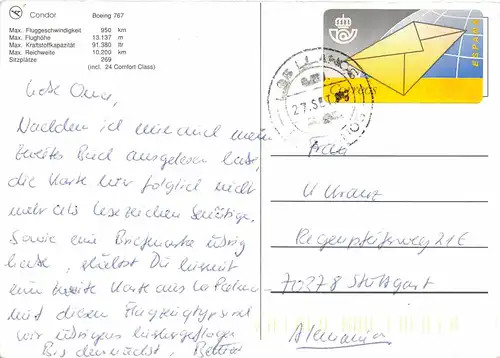 Condor Boeing 767
Max. Fluggeschwindigkeit 950 km
Max. Flughöhe 13.137 m
Max. Kraftstoffkapazität 91.380 ltr
Max. Reichweite 10.200 km
Sitzplätze 269
(incl. 24 Comfort Class)
Liebe Oma,
Nachdem ich nun auch mein
zweites Buch ausgelesen habe,
die Karte hier folglich nicht
mehr als Lesezeichen benötige,
sowie eine Briefmarke übrig
habe, erhältst Du hiermit
eine zweite Karte aus La Palma
mit diesem Flugzeugtyp sind
wir übrigens hierhergeflogen
Bis demnächst,
ESPAÑA
Correos
LOS LLANOS
27 SET
Frau
U Kranz
Regenpfeiferweg 21E
70378 Stuttgart
Alemania